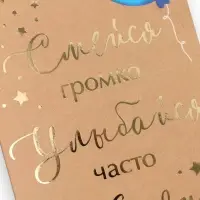 Смейся
громко
Улыбайся
часто